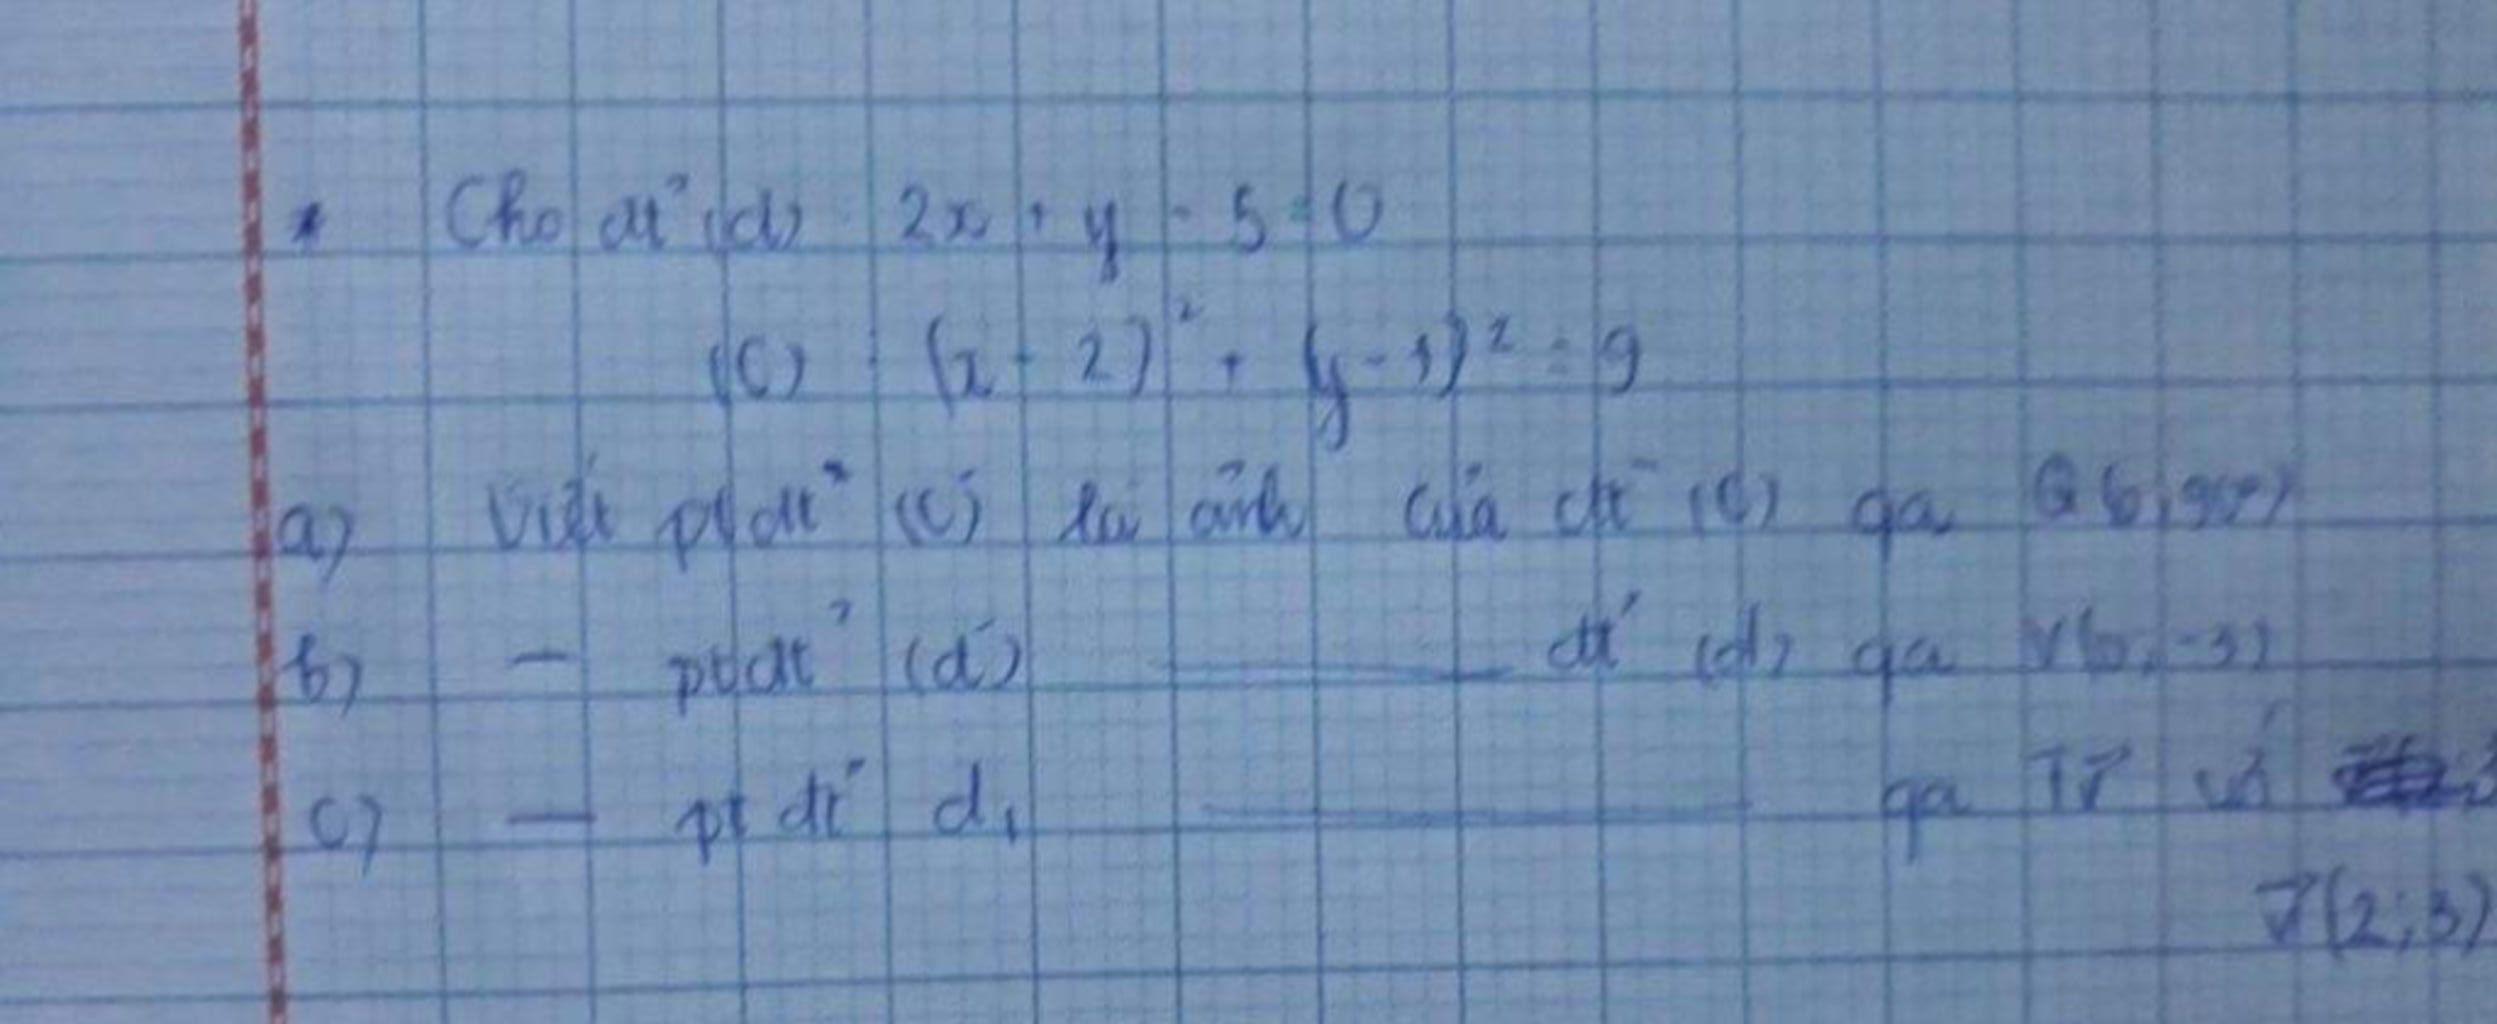 * Cho đt (d) 2x + y - 5 = 0
(C) : (x - 2)² + (y - 1)² = 9
a) Viết ptđt (C') là ảnh của đt (C) qa Q(O, 90°)
b) — ptđt (d') ——— đt (d) qa V(O, -3)
c) — pt đt d₁ ——— qa Tv⃗ với
v⃗(2;3)